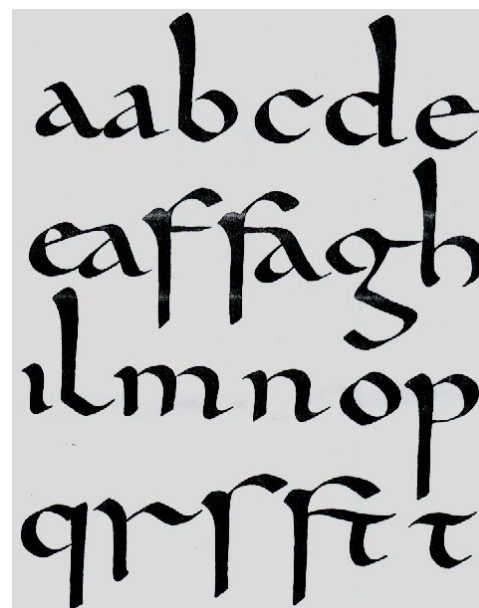 aabcde
eaffagh
ılmnop
qrſſtt